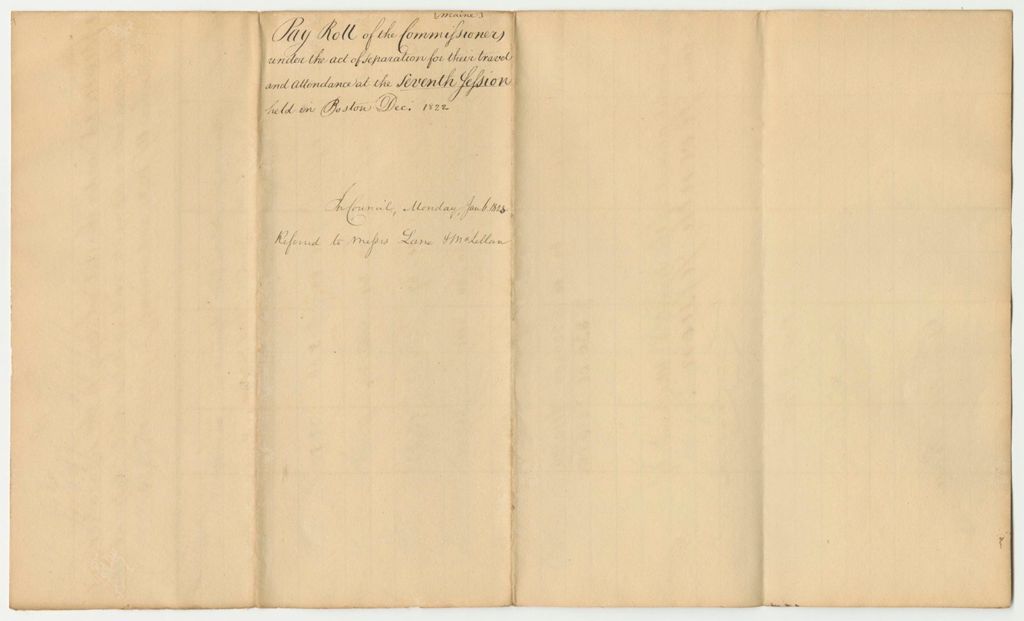 (Maine)
Pay Roll of the Commissioners
under the act of separation for their travel
and Attendance at the Seventh Session
held in Boston Dec. 1822
In Council, Monday, Jan 6. 1823
Referred to Messrs Lane & McLellan